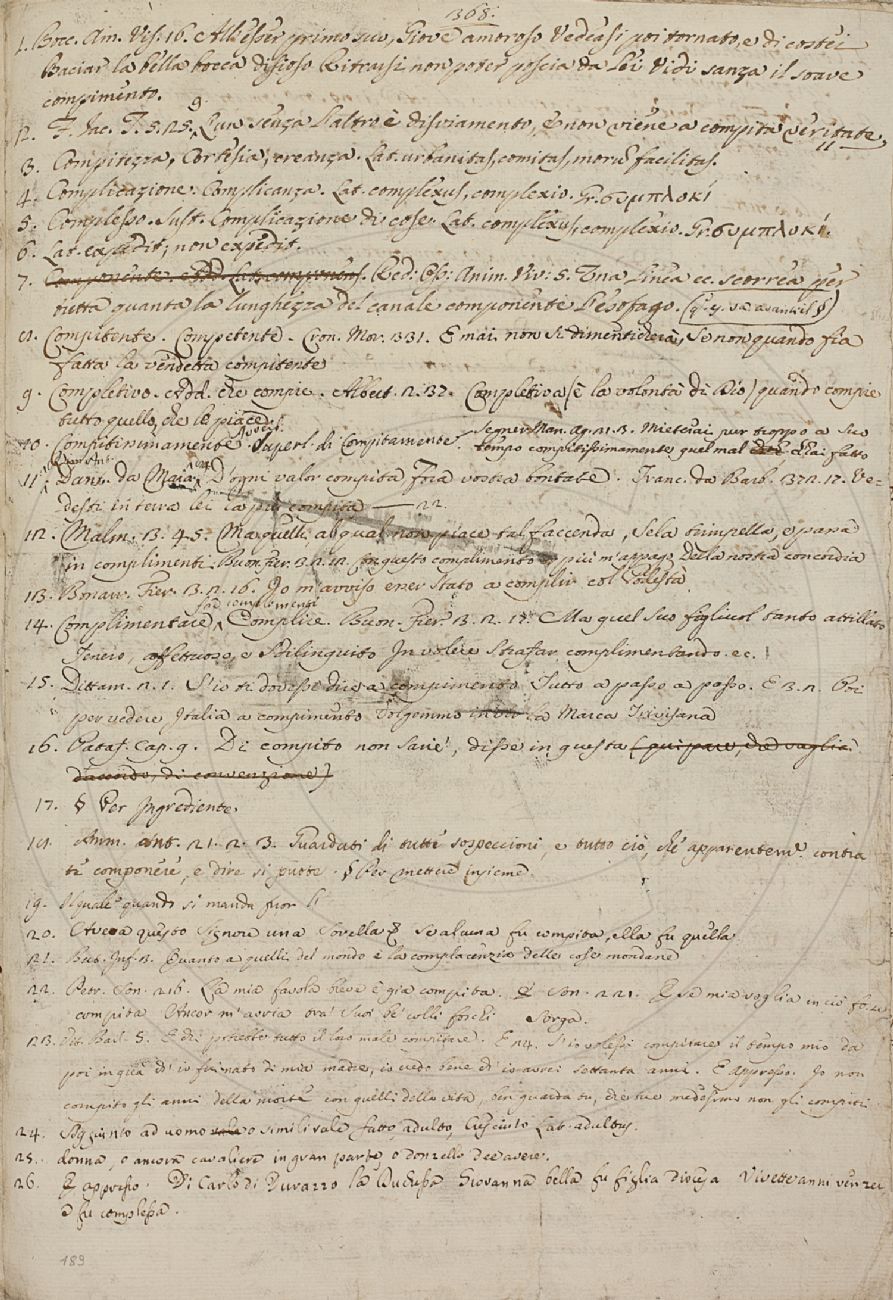 368.
1. Bocc. Am. Vis. 16. All'esser primo suo, Giove amoroso Vedeasi poi tornato, e di costei
Baciar la bella bocca disioso Ritrarsi non poter poscia da lei Vidi sanza il soave
compimento.
2. F. Jac. T. 5. 25. 9. L'un senza l'altro è disviamento, E non viene a compita veritate
3. Compitezza, Cortesia, creanza. Lat. urbanitas, comitas, morum facilitas.
4. Complicazione. Complicanza. Lat. complexus, complexio. Gr. συμπλοκὶ
5. Complesso. Sust. Complicazione di cose. Lat. complexus, complexio. Gr. συμπλοκί.
6. Lat. expedit, non expedit.
7. Componente. Add. Lat. componens. Red: Oss: Anim. Viv: 5. Una linea ec. scorrea per
tutta quanta la lunghezza del canale componente l'esofago.
8. Compitente. Competente. Cron. Mor. 331. E mai non si dimenticherà, se non quando fia
fatta la vendetta compitente
9. Completivo. Add. che compie. Albert. 2. 32. Completiva (è la volontà di Dio) quando compie
tutto quello, che le piace.
10. Compitissimamente. Superl. di Compitamente. Segner. Man. Ag. 21. 3. Mieterai pur troppo a suo
tempo compitissimamente quel mal che avrai fatto
11. Dant. da Maia. D'ogni valor compita fora vostra bontate. Franc. da Barb. 372. 17. Ve-
desti in terra lei la più compita — 22.
12. Malm. 3. 45. Mazzuelli, al qual non piace tal faccenda, Se la trimpella, e passa
in complimenti. Buon. Fier. 3. 2. 12. Con questo complimento più m'appago Della nostra concordia
13. Bonarr. Fier. 3. 2. 16. Io m'avviso esser stato a complir col Podestà
14. Complimentare, far complimenti Complire. Buon. Fier. 3. 2. 17. Ma quel suo figliuol tanto attillato
Tenero, affettuoso, e Sdilinquito In volere strafar complimentando. ec.
15. Dittam. 2. 1. S'io ti dovessi dire a compimento Tutto a passo a passo. E 3. 2. Poi
per vedere Italia a compimento Volgemmo in ver la Marca Trivisana
16. Pataf. Cap. 9. Di compito non sarie, disse in questa (qui pare, che vaglia
d'accordo, di convenzione)
17. § Per Ingrediente.
18. Amm. ant. 21. 2. 3. Guarduti di tutte sospeccioni, e tutto ciò, che apparentem. contra
te componere, e dire si puote. § Per mettere insieme
19. Uguale quando si manda fuor li
20. Aveva questo Signore una Sorella & se alcuna fu compita, ella fu quella
21. But. Inf. 3. Quanto a quelli del mondo e la complacenzia delle cose mondane
22. Petr. Son. 216. La mia favola breve è già compita. & Son. 221. E se mia voglia in ciò fosse
compita Ancor m'avria tra' suoi be' colli foschi Sorga.
23. Dit. Bart. 5. E chi potrebbe tutto il loro male compitare. E 24. S'io volessi compitare il tempo mio da
poi in quà ch'io fui nato di mia madre, io vedo bene ch'io avrei settanta anni. E appresso. Io non
compito gli anni della morte con quelli della vita, ben guarda tu, che tue medesimo non gli compiti
24. Aggiunto ad uomo o simili vale fatto, adulto, cresciuto Lat. adultus.
25. donna, o ancora cavaliere in gran parte, o donzello dee avere.
26. E appresso. Di Carlo di Durazzo la Duchessa Giovanna bella fu figlia Vivette anni ven
e fu complessa.
189